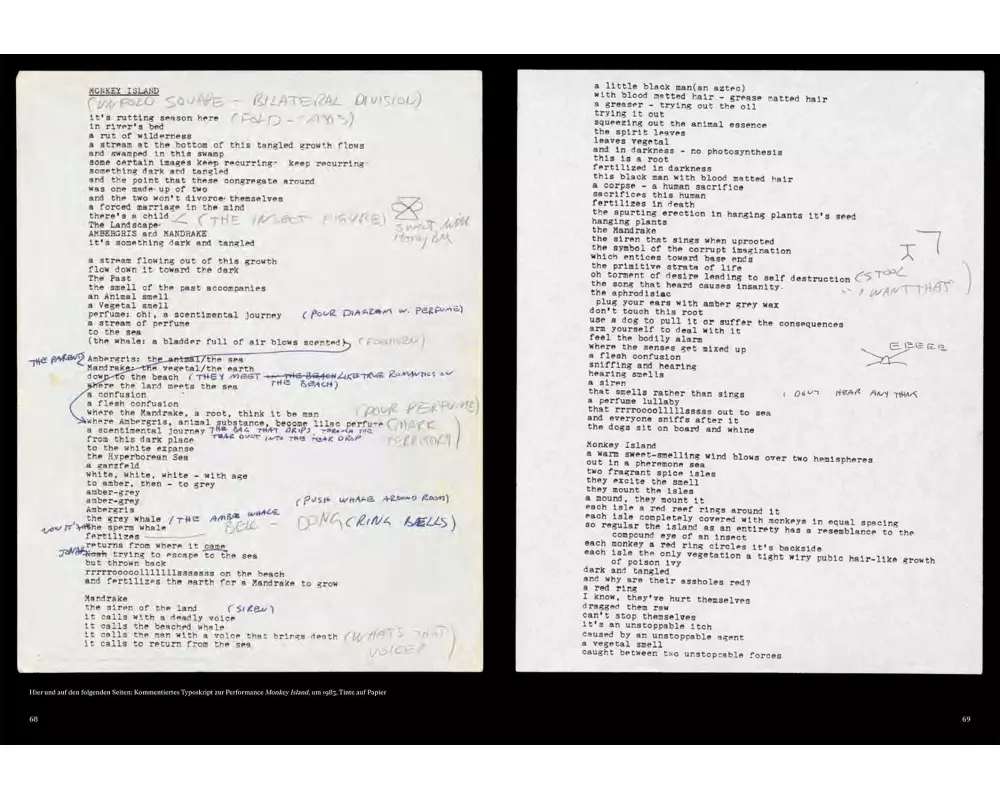 MONKEY ISLAND
(UNFOLD SQUARE - BILATERAL DIVISION)
it's rutting season here (FOLD - AXIS)
in river's bed
a rut of wilderness
a stream at the bottom of this tangled growth flows
and swamped in this swamp
some certain images keep recurring- keep recurring-
something dark and tangled
and the point that these congregate around
was one made up of two
and the two won't divorce themselves
a forced marriage in the mind
there's a child (THE INSECT FIGURE)
The Landscape-
AMBERGRIS and MANDRAKE
it's something dark and tangled
a stream flowing out of this growth
flow down it toward the dark
The Past
the smell of the past accompanies
an Animal smell
a Vegetal smell
perfume: oh!, a scentimental journey (POUR DIAGRAM W. PERFUME)
a stream of perfume
to the sea
(the whale: a bladder full of air blows scented) (FOGHORN)
THE PARENTS Ambergris: the animal/the sea
Mandrake: the vegetal/the earth
down to the beach (THEY MEET ON THE BEACH LIKE TRUE ROMANTICS ON
where the land meets the sea THE BEACH)
a confusion
a flesh confusion
where the Mandrake, a root, think it be man (POUR PERFUME)
where Ambergris, animal substance, become lilac perfume (MARK
a scentimental journey THE BAG THAT DRIPS THROUGH THE TERRITORY)
from this dark place TEAR DUCT INTO THE TEAR DROP
to the white expanse
the Hyperborean Sea
a ganzfeld
white, white, white - with age
to amber, then - to grey
amber-grey
amber-grey (PUSH WHALE AROUND ROOM)
Ambergris
the grey whale / THE AMBER WHALE
NOW IT'S the sperm whale BELL - DONG (RING BELLS)
fertilizes
returns from where it came
JONAH Noah trying to escape to the sea
but thrown back
rrrrroooollllllsssssss on the beach
and fertilizes the earth for a Mandrake to grow
Mandrake
the siren of the land (SIREN)
it calls with a deadly voice
it calls the beached whale
it calls the man with a voice that brings death (WHAT'S THAT
it calls to return from the sea VOICE?)
a little black man(an aztec)
with blood matted hair - grease matted hair
a greaser - trying out the oil
trying it out
squeezing out the animal essence
the spirit leaves
leaves vegetal
and in darkness - no photosynthesis
this is a root
fertilized in darkness
this black man with blood matted hair
a corpse - a human sacrifice
sacrifices this human
fertilizes in death
the spurting erection in hanging plants it's seed
hanging plants
the Mandrake
the siren that sings when uprooted
the symbol of the corrupt imagination
which entices toward base ends
the primitive strata of life
oh torment of desire leading to self destruction (STOOL
the song that heard causes insanity- I WANT THAT)
the aphrodisiac
plug your ears with amber grey wax
don't touch this root
use a dog to pull it or suffer the consequences
arm yourself to deal with it
feel the bodily alarm
where the senses get mixed up EEEEE
a flesh confusion
sniffing and hearing
hearing smells
a siren
that smells rather than sings I DON'T HEAR ANYTHING
a perfume lullaby
that rrrroooolllllsssss out to sea
and everyone sniffs after it
the dogs sit on board and whine
Monkey Island
a warm sweet-smelling wind blows over two hemispheres
out in a pheremone sea
two fragrant spice isles
they excite the smell
they mount the isles
a mound, they mount it
each isle a red reef rings around it
each isle completely covered with monkeys in equal spacing
so regular the island as an entirety has a resemblance to the
compound eye of an insect
each monkey a red ring circles it's backside
each isle the only vegetation a tight wiry pubic hair-like growth
of poison ivy
dark and tangled
and why are their assholes red?
a red ring
I know, they've hurt themselves
dragged them raw
can't stop themselves
it's an unstoppable itch
caused by an unstoppable agent
a vegetal smell
caught between two unstopcable forces
Hier und auf den folgenden Seiten: Kommentiertes Typoskript zur Performance Monkey Island, um 1983, Tinte auf Papier
68
69